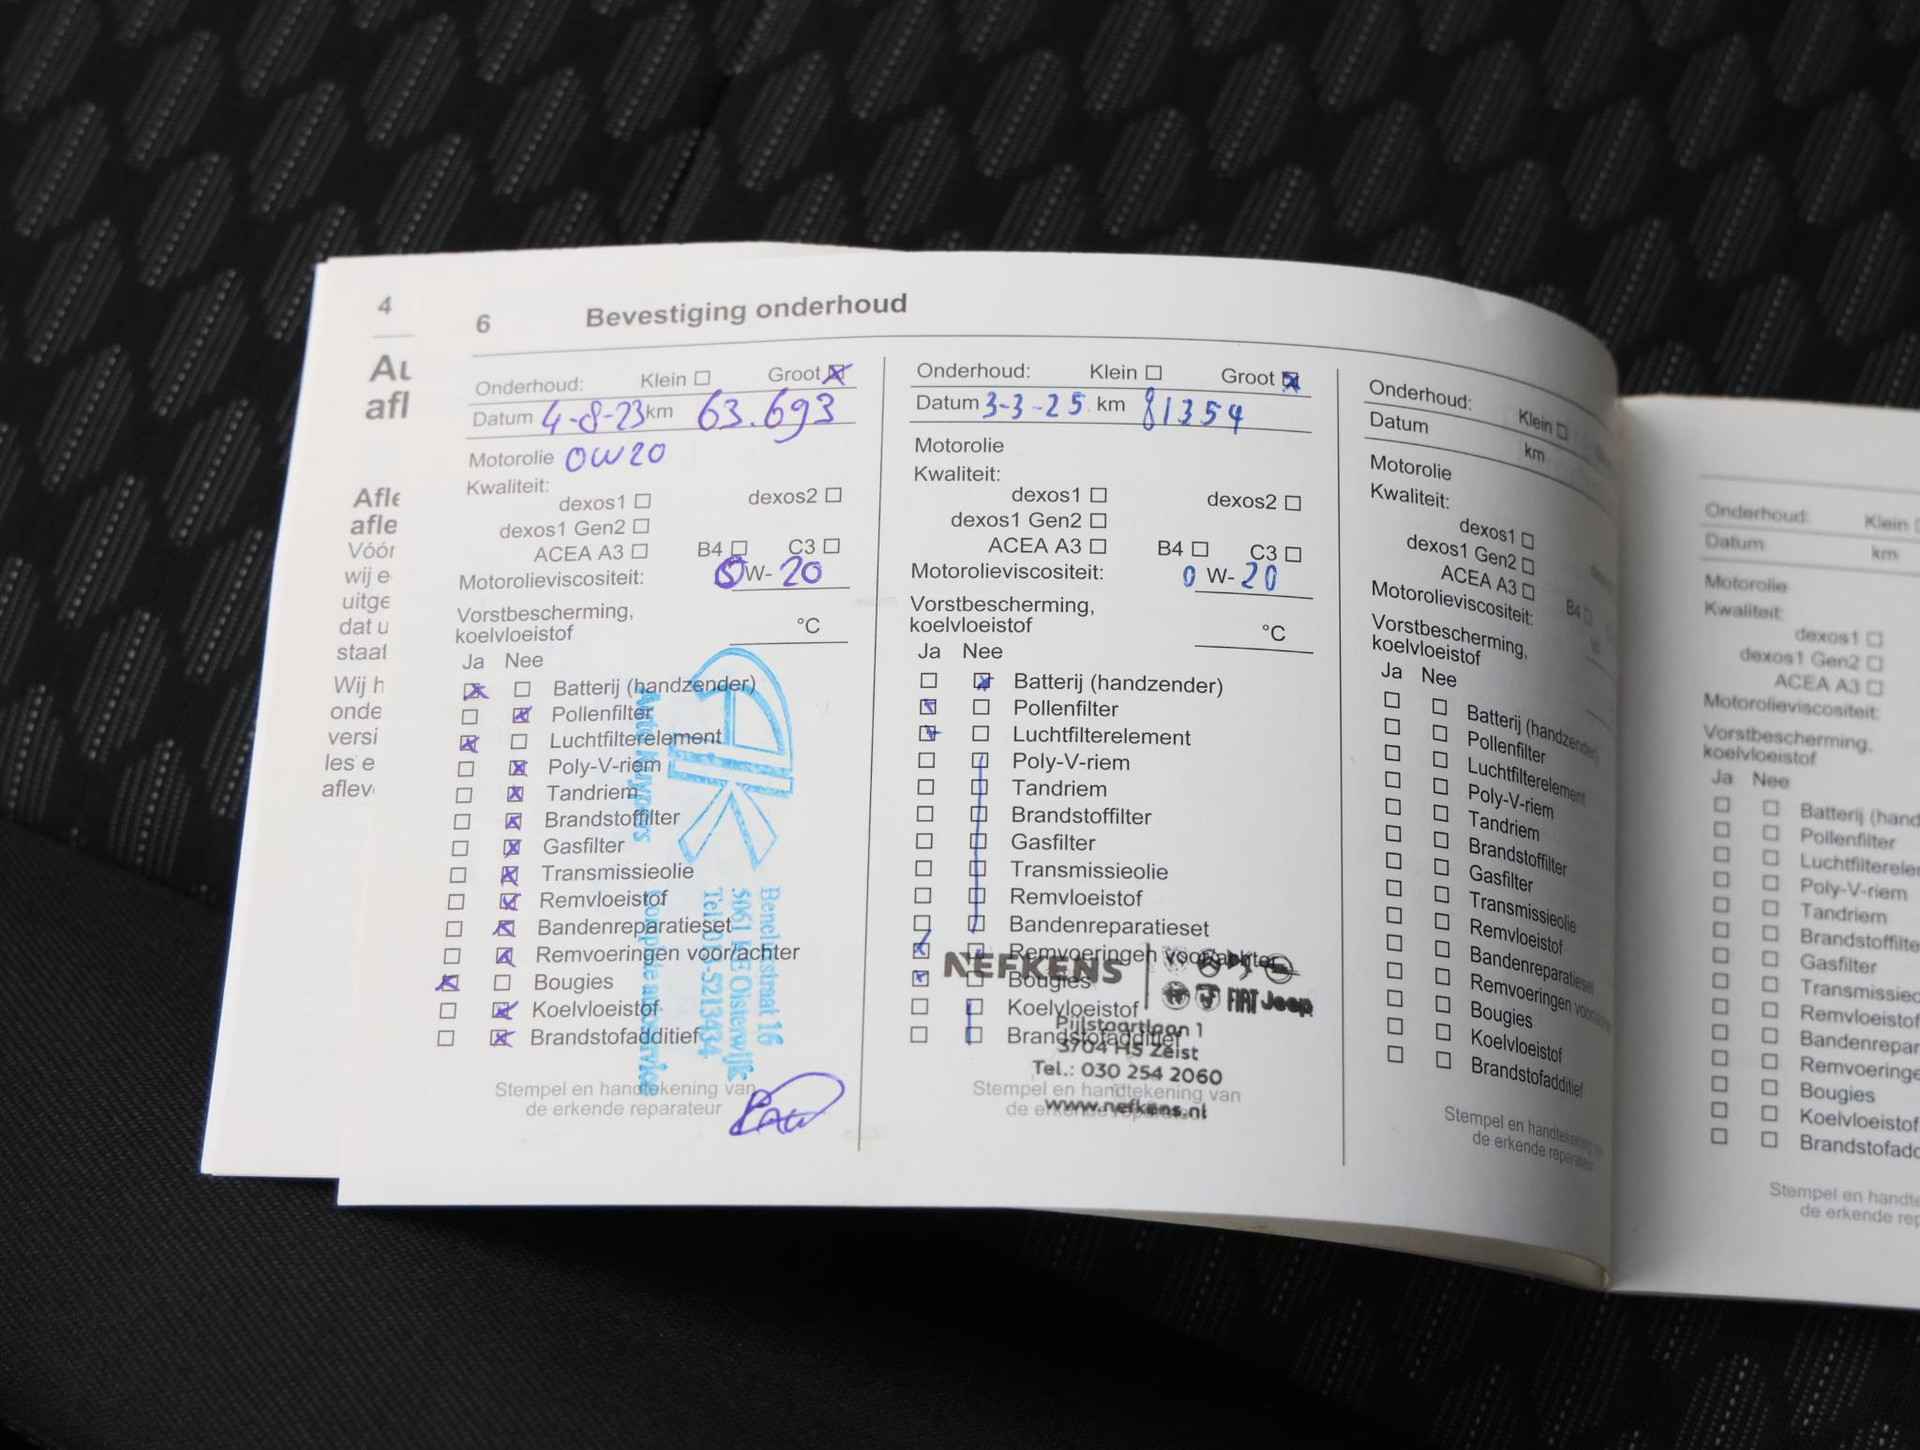 4
Au
afl
Afle
afle
Vóór
wij e
uitge
dat u
staat
Wij h
onde
versi
les e
aflev
6 Bevestiging onderhoud
Onderhoud: Klein ☐ Groot ☒
Datum 4-8-23 km 63.693
Motorolie 0W20
Kwaliteit:
dexos1 ☐ dexos2 ☐
dexos1 Gen2 ☐
ACEA A3 ☐ B4 ☐ C3 ☐
Motorolieviscositeit: 0W-20
Vorstbescherming,
koelvloeistof °C
Ja Nee
☒ ☐ Batterij (handzender)
☐ ☒ Pollenfilter
☒ ☐ Luchtfilterelement
☐ ☒ Poly-V-riem
☐ ☒ Tandriem
☐ ☒ Brandstoffilter
☐ ☒ Gasfilter
☐ ☒ Transmissieolie
☐ ☒ Remvloeistof
☐ ☒ Bandenreparatieset
☐ ☒ Remvoeringen voor/achter
☒ ☐ Bougies
☐ ☒ Koelvloeistof
☐ ☒ Brandstofadditief
Stempel en handtekening van
de erkende reparateur
AK
Kuypers
Complete autoservice
Tel. 013-5213434
5061 KE Oisterwijk
Beneluxstraat 16
Onderhoud: Klein ☐ Groot ☒
Datum 3-3-25 km 81354
Motorolie
Kwaliteit:
dexos1 ☐ dexos2 ☐
dexos1 Gen2 ☐
ACEA A3 ☐ B4 ☐ C3 ☐
Motorolieviscositeit: 0 W-20
Vorstbescherming,
koelvloeistof °C
Ja Nee
☐ ☒ Batterij (handzender)
☒ ☐ Pollenfilter
☒ ☐ Luchtfilterelement
☐ ☐ Poly-V-riem
☐ ☐ Tandriem
☐ ☐ Brandstoffilter
☐ ☐ Gasfilter
☐ ☐ Transmissieolie
☐ ☐ Remvloeistof
☐ ☐ Bandenreparatieset
☒ ☐ Remvoeringen voor/achter
☒ ☐ Bougies
☐ ☐ Koelvloeistof
☐ ☐ Brandstofadditief
NEFKENS
FIAT Jeep
Pijlstaartlaan 1
3704 HS Zeist
Tel.: 030 254 2060
www.nefkens.nl
Stempel en handtekening van
de erkende reparateur
Onderhoud: Klein ☐
Datum km
Motorolie
Kwaliteit:
dexos1 ☐
dexos1 Gen2 ☐
ACEA A3 ☐ B4 ☐
Motorolieviscositeit:
Vorstbescherming,
koelvloeistof
Ja Nee
☐ ☐ Batterij (handzender)
☐ ☐ Pollenfilter
☐ ☐ Luchtfilterelement
☐ ☐ Poly-V-riem
☐ ☐ Tandriem
☐ ☐ Brandstoffilter
☐ ☐ Gasfilter
☐ ☐ Transmissieolie
☐ ☐ Remvloeistof
☐ ☐ Bandenreparatieset
☐ ☐ Remvoeringen voor/achter
☐ ☐ Bougies
☐ ☐ Koelvloeistof
☐ ☐ Brandstofadditief
Stempel en handtekening
de erkende reparateur
Onderhoud: Klein ☐
Datum km
Motorolie
Kwaliteit:
dexos1 ☐
dexos1 Gen2 ☐
ACEA A3 ☐
Motorolieviscositeit:
Vorstbescherming,
koelvloeistof
Ja Nee
☐ ☐ Batterij (hand
☐ ☐ Pollenfilter
☐ ☐ Luchtfilterele
☐ ☐ Poly-V-riem
☐ ☐ Tandriem
☐ ☐ Brandstoffilte
☐ ☐ Gasfilter
☐ ☐ Transmissieo
☐ ☐ Remvloeistof
☐ ☐ Bandenrepar
☐ ☐ Remvoeringe
☐ ☐ Bougies
☐ ☐ Koelvloeistof
☐ ☐ Brandstofadd
Stempel en handte
de erkende rep